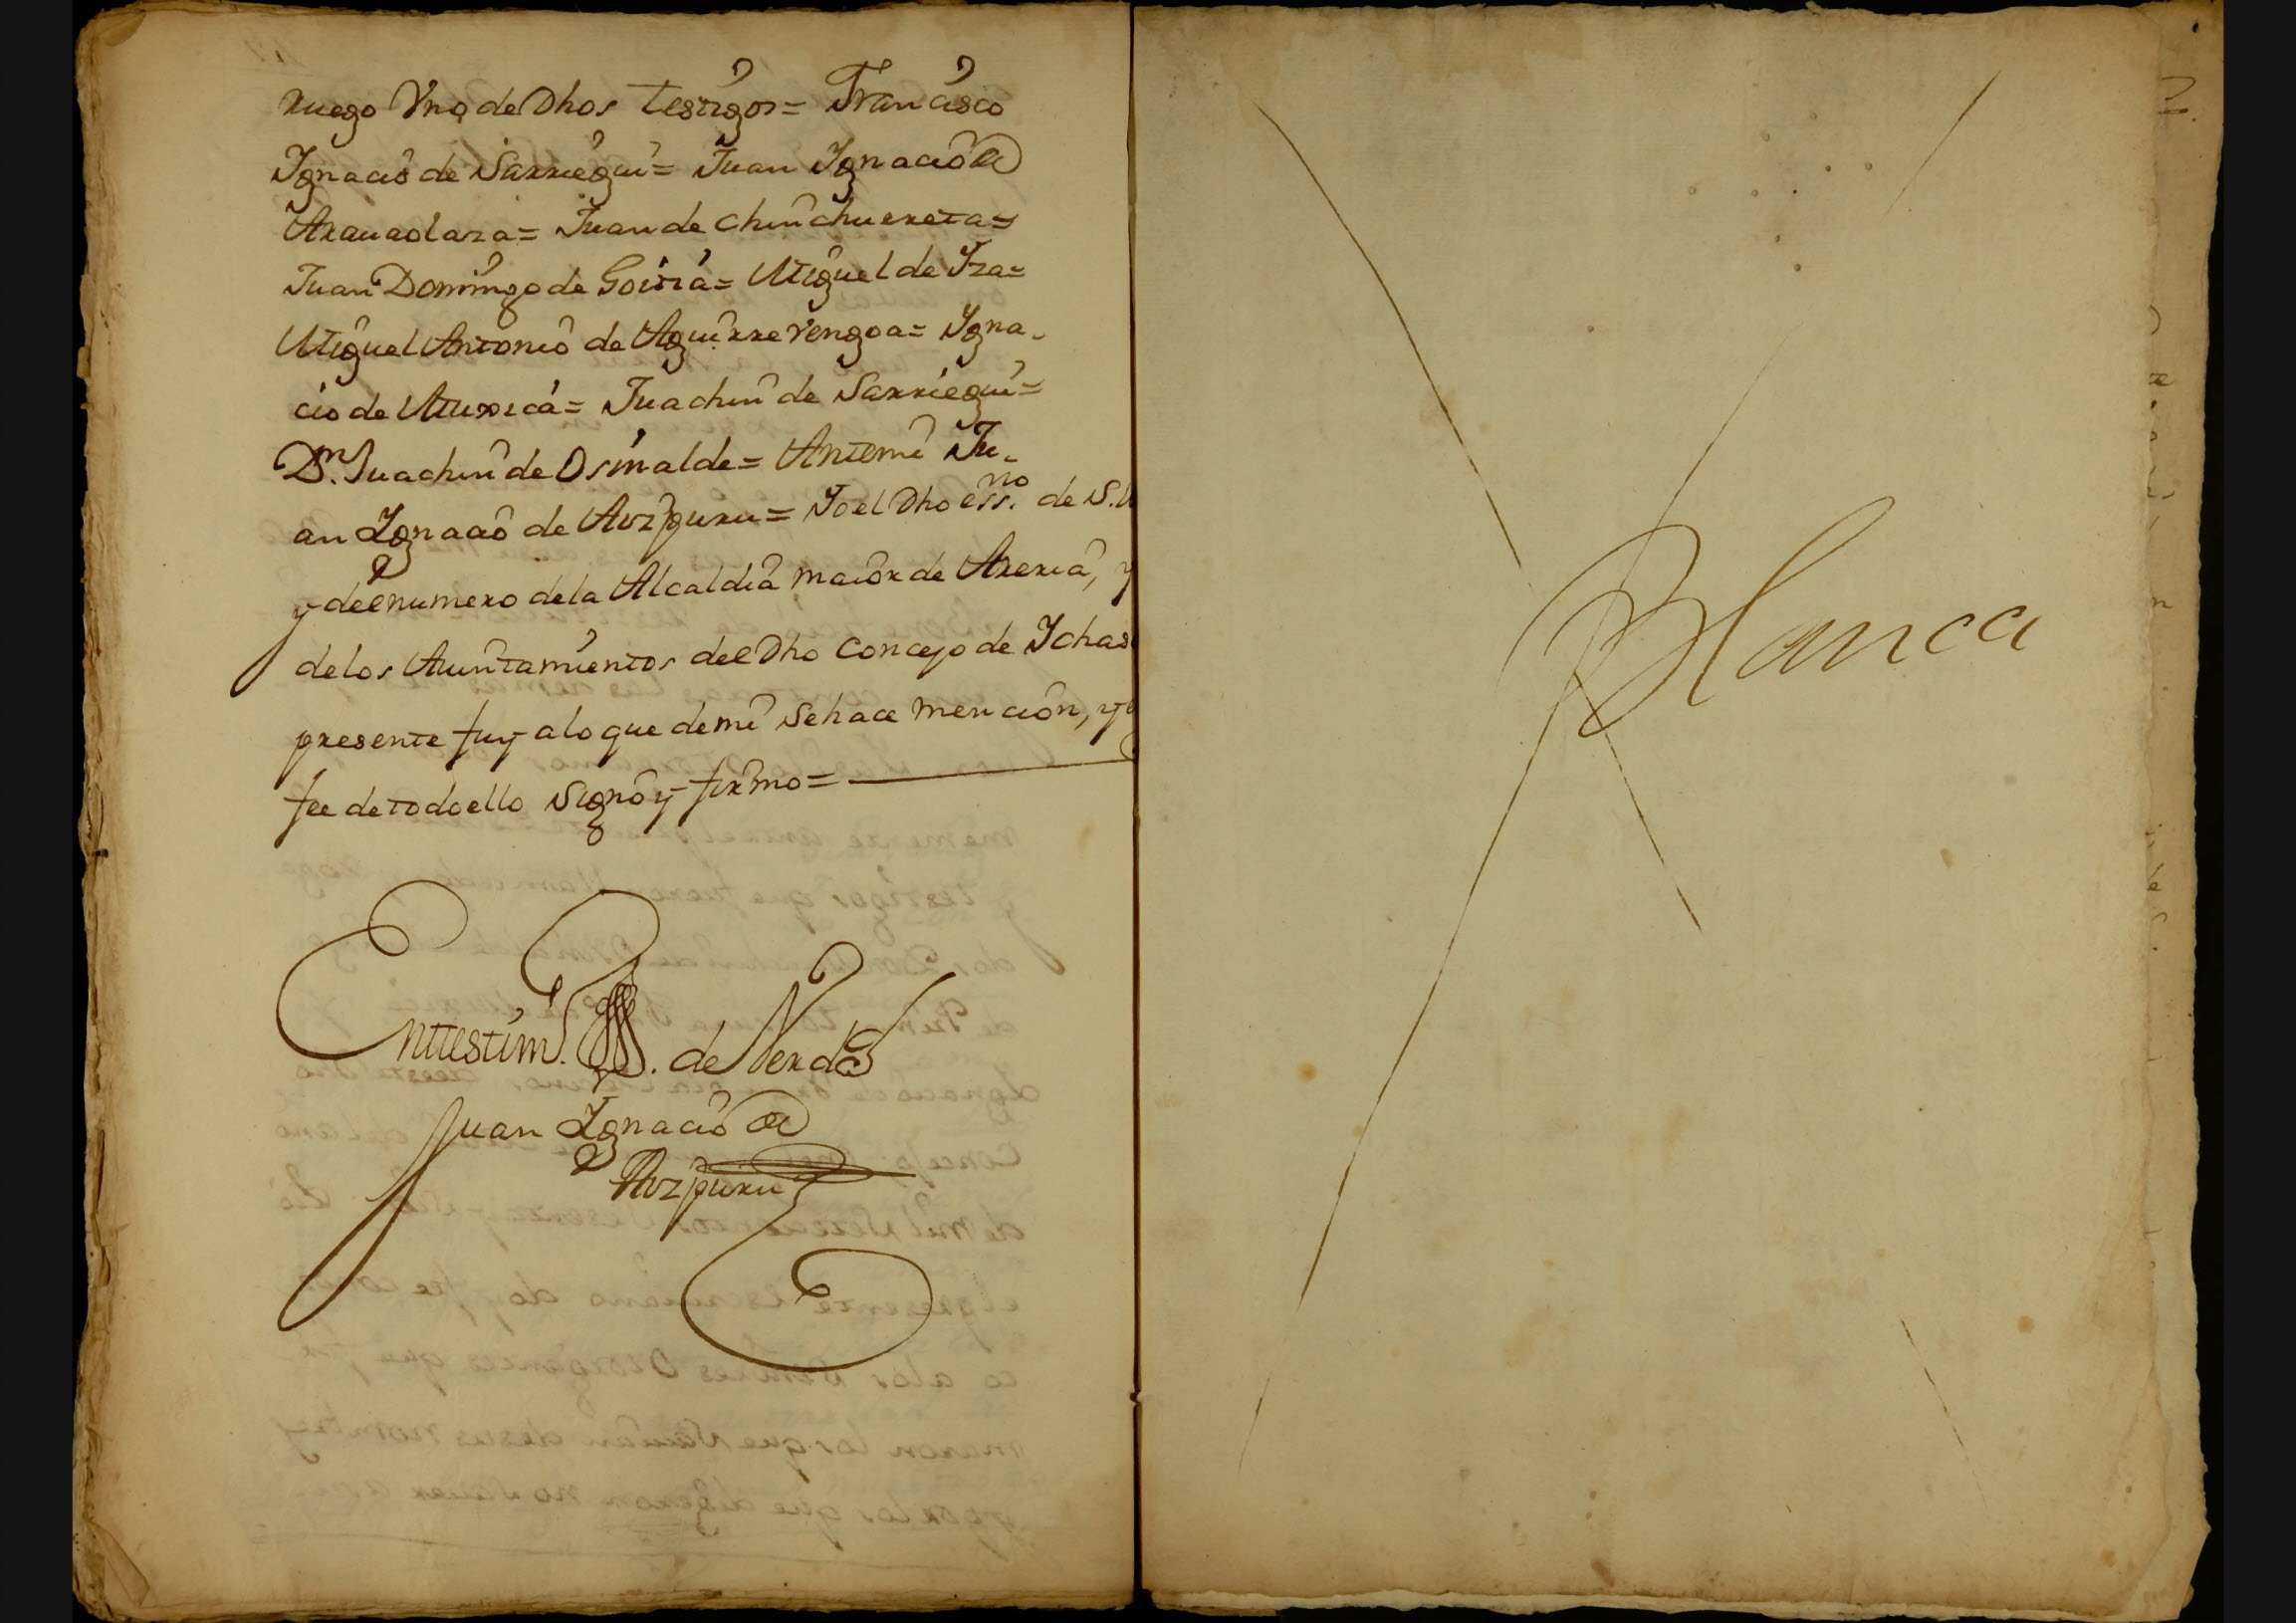 ruego Vno de Dhos testigos = Francisco
Ignacio de Sarriegui = Juan Ignacio de
Arauaolaza = Juan de Chinchurreta =
Juan Domingo de Goitia = Miguel de Iza =
Miguel Antonio de Aguirrevengoa = Igna-
cio de Muxica = Juachin de Sarriegui =
Dn. Juachin de Osinalde = Antemi Ju-
an Ignacio de Aozpuru = Io el Dho essno. de S.
y de el numero de la Alcaldia maior de Areria, y
de los Aiuntamientos de el Dho Concejo de Ichas
presente fuy alo que demi se hace mencion, y
fee de todo ello signo y firmo =
Enttestim. de Verdad
Juan Ignacio de
Aozpuru
Blanca